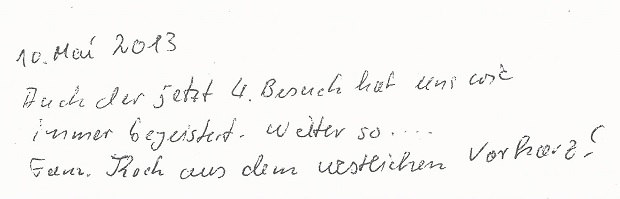 10. Mai 2013
Auch der jetzt 4. Besuch hat uns wie
immer begeistert. Weiter so....
Fam. Koch aus dem westlichen Vorharz!